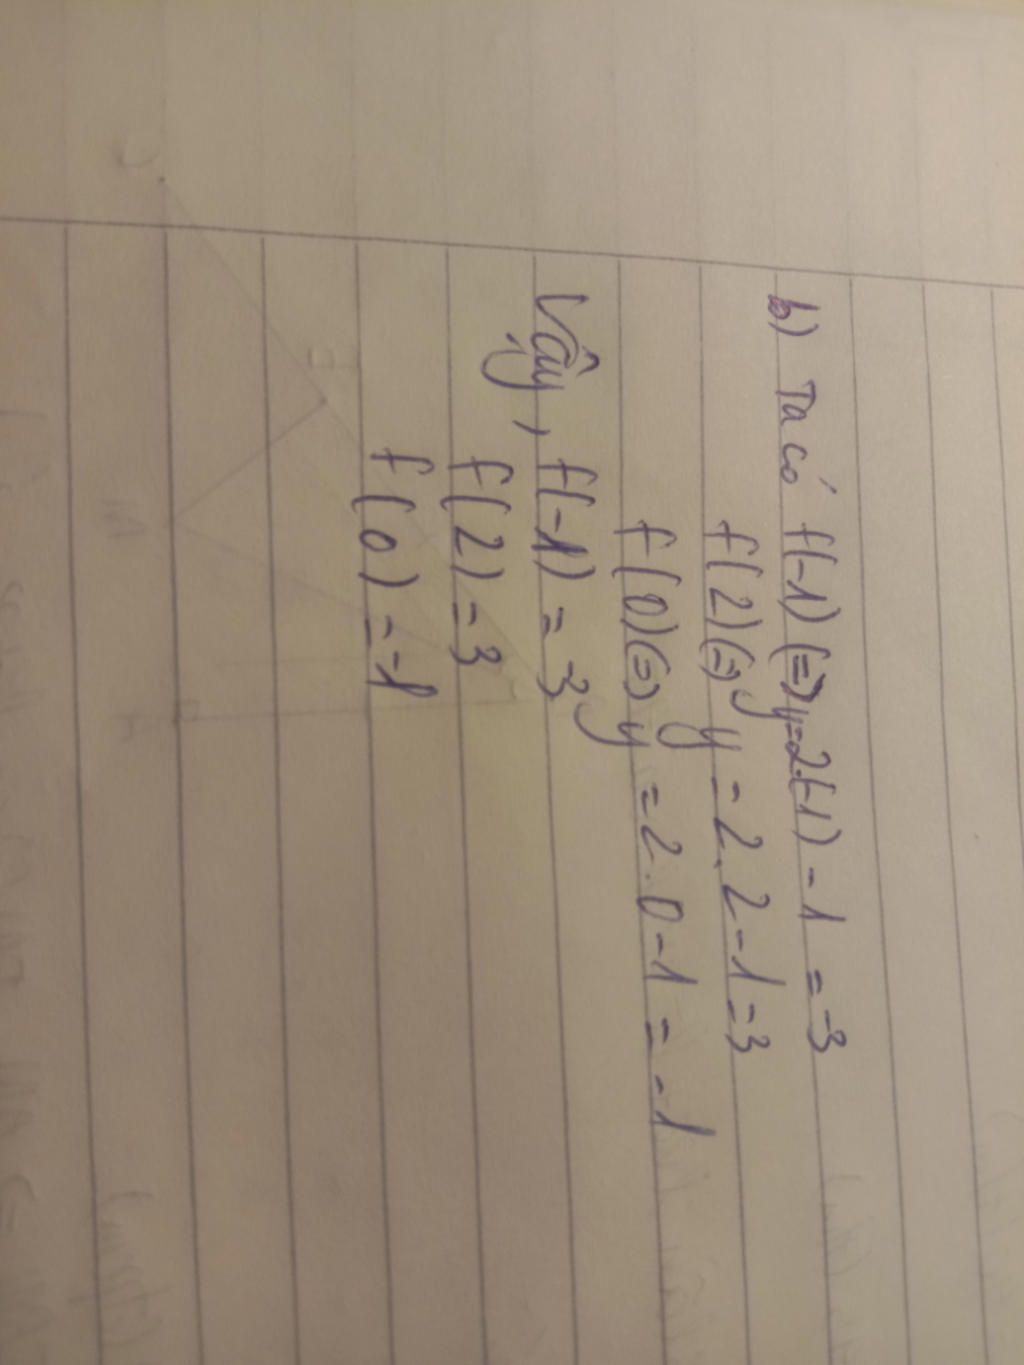 b) Ta có f(-1) (=) y=2.(-1) - 1 = -3
f(2) (=) y = 2.2-1=3
f(0) (=) y = 2.0-1 = -1
Vậy, f(-1) = -3
f(2) = 3
f(0) = -1